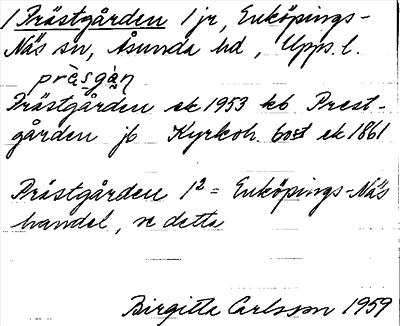 1 Prästgården 1 jr, Enköpings-
Näs sn, Åsunda hd, Upps. l.
prä̀sgàn
Prästgården ek 1953 kb Prest-
gården jb Kyrkoh. bost ek 1861
Prästgården 1² = Enköpings-Näs
handel, se detta
Birgitta Carlsson 1959